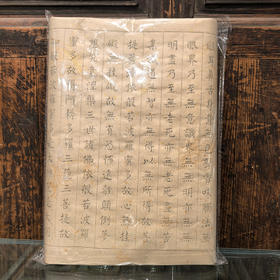 眼耳鼻舌身意無色聲香味觸法無
眼界乃至無意識界無無明亦無無
明盡乃至無老死亦無老死盡無苦
集滅道無智亦無得以無所得故菩
提薩埵依般若波羅蜜多故心無罣
礙無罣礙故無有恐怖遠離顛倒夢
想究竟涅槃三世諸佛依般若波羅
蜜多故得阿耨多羅三藐三菩提故